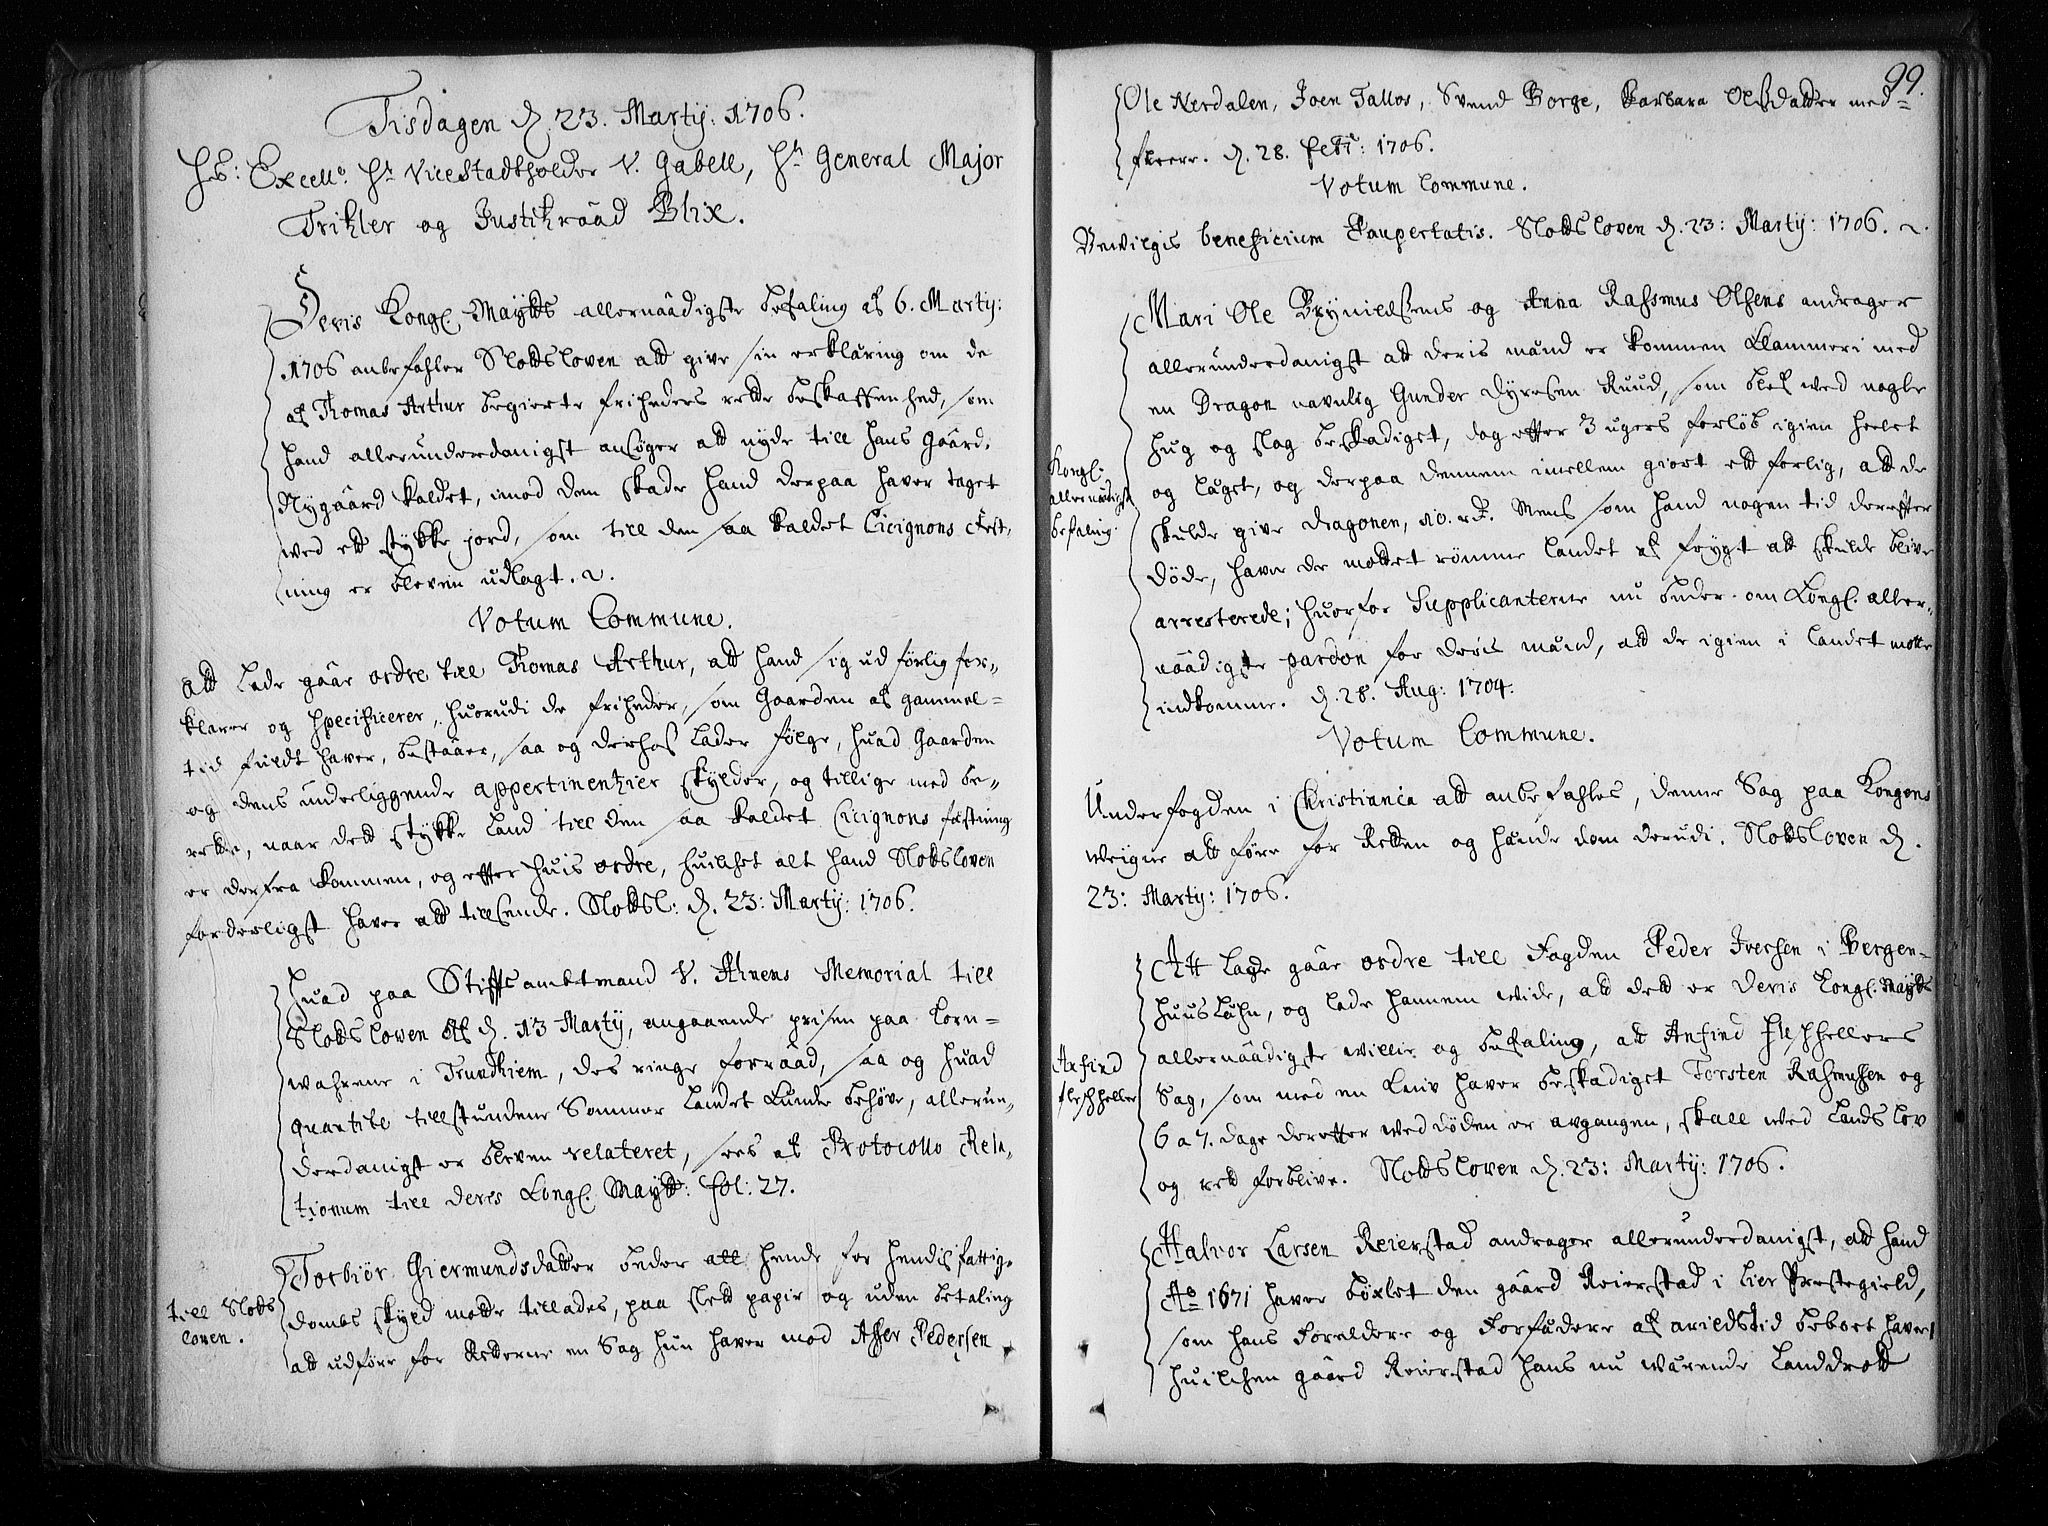 Tisdagen d. 23. Martij: 1706.
Hs: Excell: Hr Vicestadtholder V. Gabell, Hr General Major
Tritzler og Justitzrååd Blix.
Deris Kongl. Maytts allernåådigste befaling af 6. Martij:
1706 anbefahler Slottsloven att give sin erklåring om de
af Thomas Arthur begierte friheders rette beskaffenhed, som
hand allerunderdanigst ansøger att nyde till hans gaård,
Nygaård kaldet, imod den skade hand derpaa haver taget
ved ett stykke jord, som till den saa kaldet Cicignons Fest,,
ning er bleven udlagt.
Votum Commune.
Att lade gåår ordre till Thomas Arthur, att hand sig udførlig for,,
klarer og specificerer, huorudi de friheder, som Gaarden af gammel=
tid fuldt haver, beståaer, saa og derhos lader følge, huad Gaarden
og dens underliggende appertinentzier skylder, og tillige med be,,
rette, naar dett stykke Land till den saa kaldet Cicignons fæstning
er derfra kommen, og efter huis ordre, huilket alt hand Slottsloven
forderligst haver att tillsende. Slottsl: d. 23: Martij: 1706.
Huad paa Stiftsambtmand V. Ahnens Memorial till
Slottsloven af d. 13 Martij, angaaende prisen paa Korn=
wahrene i Trundhiem, des ringe forrååd, saa og huad
quantitet tillstundene Sommer Landet kunde behøve, allerun,,
derdanigst er bleven relateret, sees af Protocollo Rela,,
tionum till deris Kongl. Maytt: fol: 27.
Torbiør Giermundsdatter beder att hende for hendis fattig,,
till Slotts
loven.
dombs skyld motte tillades, paa slett papir og uden betaling
att udføre for Retterne en Sag hun haver mod Asser Pedersen
99.
Ole Nerdalen, Joen Tallos, Svend Borge, Barbara Olsdatter med=
fleere. d. 28. 1706.
Votum Commune.
Bewilgis beneficium Paupertatis. Slottsloven d. 23: Martij: 1706.
Mari Ole Brynildsens og Anna Rasmus Olsens andrager
allerunderdanigst att deris månd er kommen Klammeri med
en Dragon navnlig Gunder Dyresen Ruud, som blef ved nogle
hug og slag beskadiget, dog effter 3 ugers forløb igien heelet
Kongl.
allernådigst
befaling.
og låget, og derpaa dennem imellem giort ett forlig, att de
skulde give dragonen, 10. rd. Mens som hand nogen tid dereffter
døde, haver de mottet rømme Landet af frygt att skulde blive
arresterede; huorfor Supplicanterne nu beder om Kongl. aller,,
nåådigste pardon for deris månd, att de igien i Landet motte
indkomme. d. 28. Aug: 1704.
Votum Commune.
Underfogden i Christiania att anbefahles, denne Sag paa Kongens
weigne att føre for Retten og hånde dom derudi. Slottsloven d.
23: Martij: 1706.
Att lade gåår ordre till Fogden Peder Iversen i Bergen=
huus Lehn, og lade hannem vide, att dett er Deris Kongl. Maytts
allernåådigste willie og befaling, att Anfind Flesshellers
Anfind
flessheller
Sag, som med en Kniv haver beskadiget Torsten Rasmussen og
6 a 7. dage dereffter ved døden er avgangen, skall ved Landslov
og rett forblive. Slottsloven d. 23: Martij: 1706.
Halvor Larsen Reierstad andrager allerunderdanigst, att hand
Ao 1671 haver bøxlet den gaård Reierstad i Lier Prestegield,
som hans Foreldere og Forfådere af arildstid beboet haver
huilchen gaård Reierstad hans nu wårende Landdrott